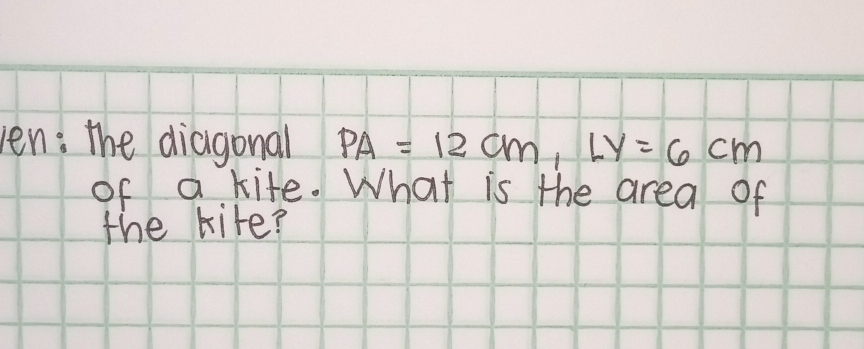 ven: the diagonal PA = 12 cm, LY = 6 cm
of a kite. What is the area of
the kite?